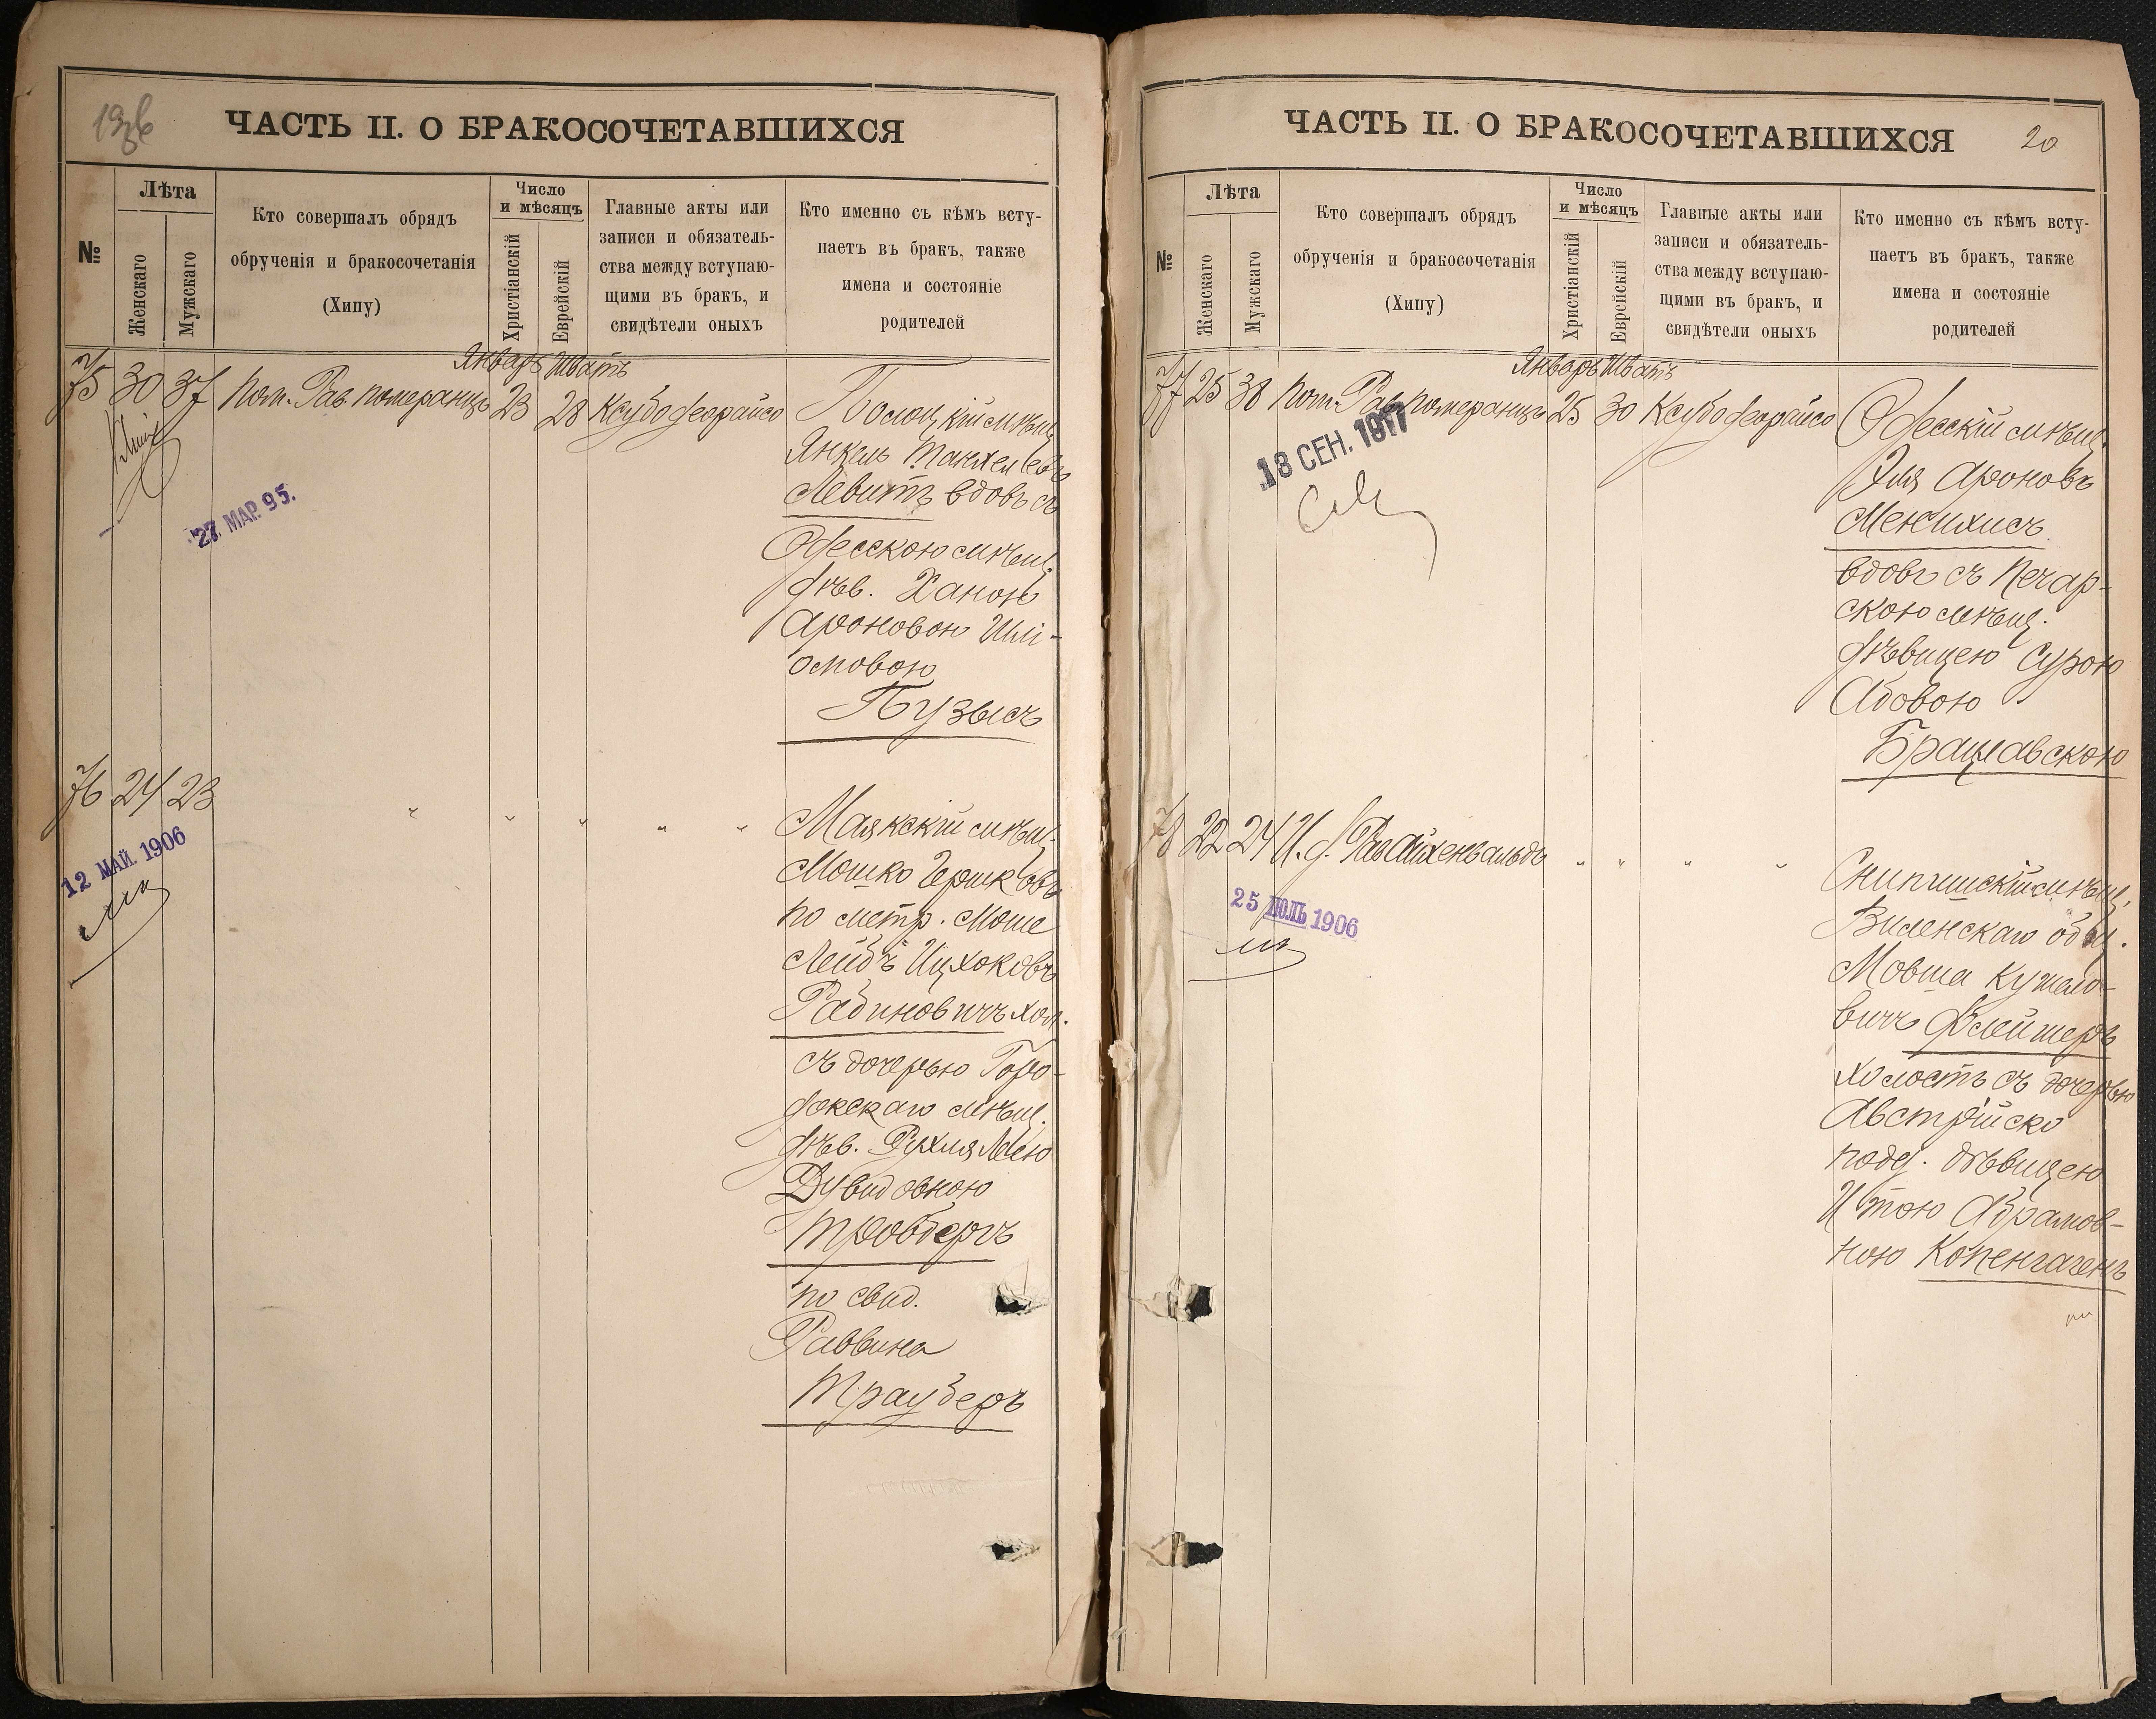 ЧАСТЬ II. О БРАКОСОЧЕТАВШИХСЯ
№
Лѣта
Женскаго
Мужскаго
Кто совершалъ обрядъ
обрученія и бракосочетанія
(Хипу)
Число
и мѣсяцъ
Христіанскій
Еврейскій
Главные акты или
записи и обязатель-
ства между вступаю-
щими въ бракъ, и
свидѣтели оныхъ
Кто именно съ кѣмъ всту-
паетъ въ бракъ, также
имена и состояніе
родителей
Январь Шватъ
75 30 37 Пом. Рав. Померанцъ 23 28 Ксубо деорайсо
мѣщ.
Янкель
Левитъ вдовъ съ
Одесскою мѣщ.
дѣв. Ханою
Ароновою Шлі-
омовою
Пузысъ
27. МАР. 95.
76 24 23 " " " " "
Маякскій мѣщ.
Мошко Гершковъ
по метр. Моше
Лейбъ Ицхоковъ
Рабиновичъ хол.
съ дочерью Горо-
докскаго мѣщ.
дѣв. Рухля Леею
Дувидовною
Тровбергъ
по свид.
Раввина
Трауберъ
12 МАЙ. 1906
ЧАСТЬ II. О БРАКОСОЧЕТАВШИХСЯ
20
№
Лѣта
Женскаго
Мужскаго
Кто совершалъ обрядъ
обрученія и бракосочетанія
(Хипу)
Число
и мѣсяцъ
Христіанскій
Еврейскій
Главные акты или
записи и обязатель-
ства между вступаю-
щими въ бракъ, и
свидѣтели оныхъ
Кто именно съ кѣмъ всту-
паетъ въ бракъ, также
имена и состояніе
родителей
Январь Шватъ
77 25 38 Пом. Рав. Померанцъ 25 30 Ксубо деорайсо
Одесскій мѣщ.
Эля Ароновъ
Менихисъ
вдовъ съ Печар-
скою мѣщ.
дѣвицею Сурою
Абовою
Брацлавскою
13 СЕН. 1917
78 22 24 И. д. Рав. Айхенвальдъ " " " "
Снипишскій мѣщ.
Виленскаго общ.
Мовша
вичъ Флейшеръ
холостъ съ дочерью
Австрійско
подд. дѣвицею
Итою Абрамов-
ною Копенгагенъ
25 ІЮЛЬ 1906